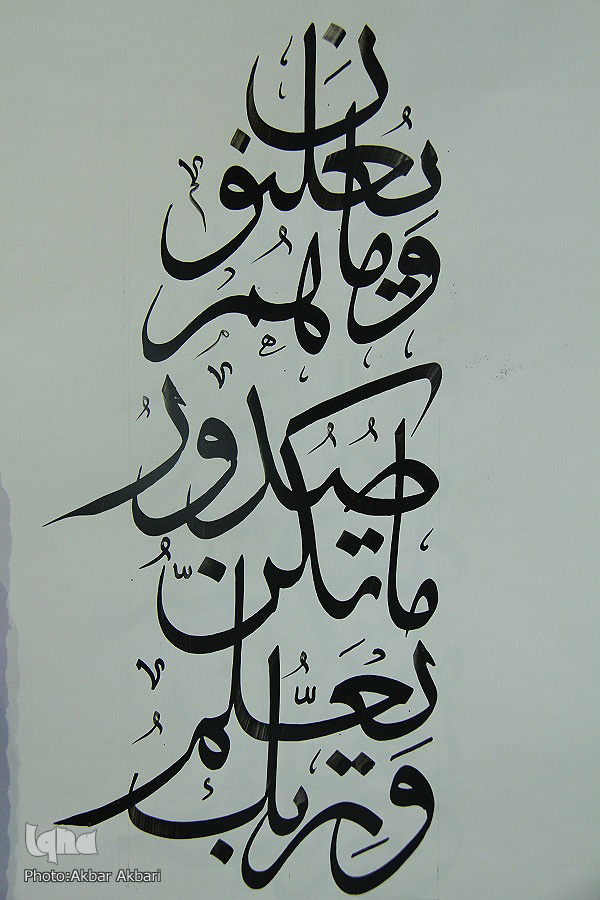 وَرَبُّكَ
يَعْلَمُ
مَا تُكِنُّ
صُدُورُ
هُمْ وَمَا
يُعْلِنُونَ
Iqna
Photo:Akbar Akbari